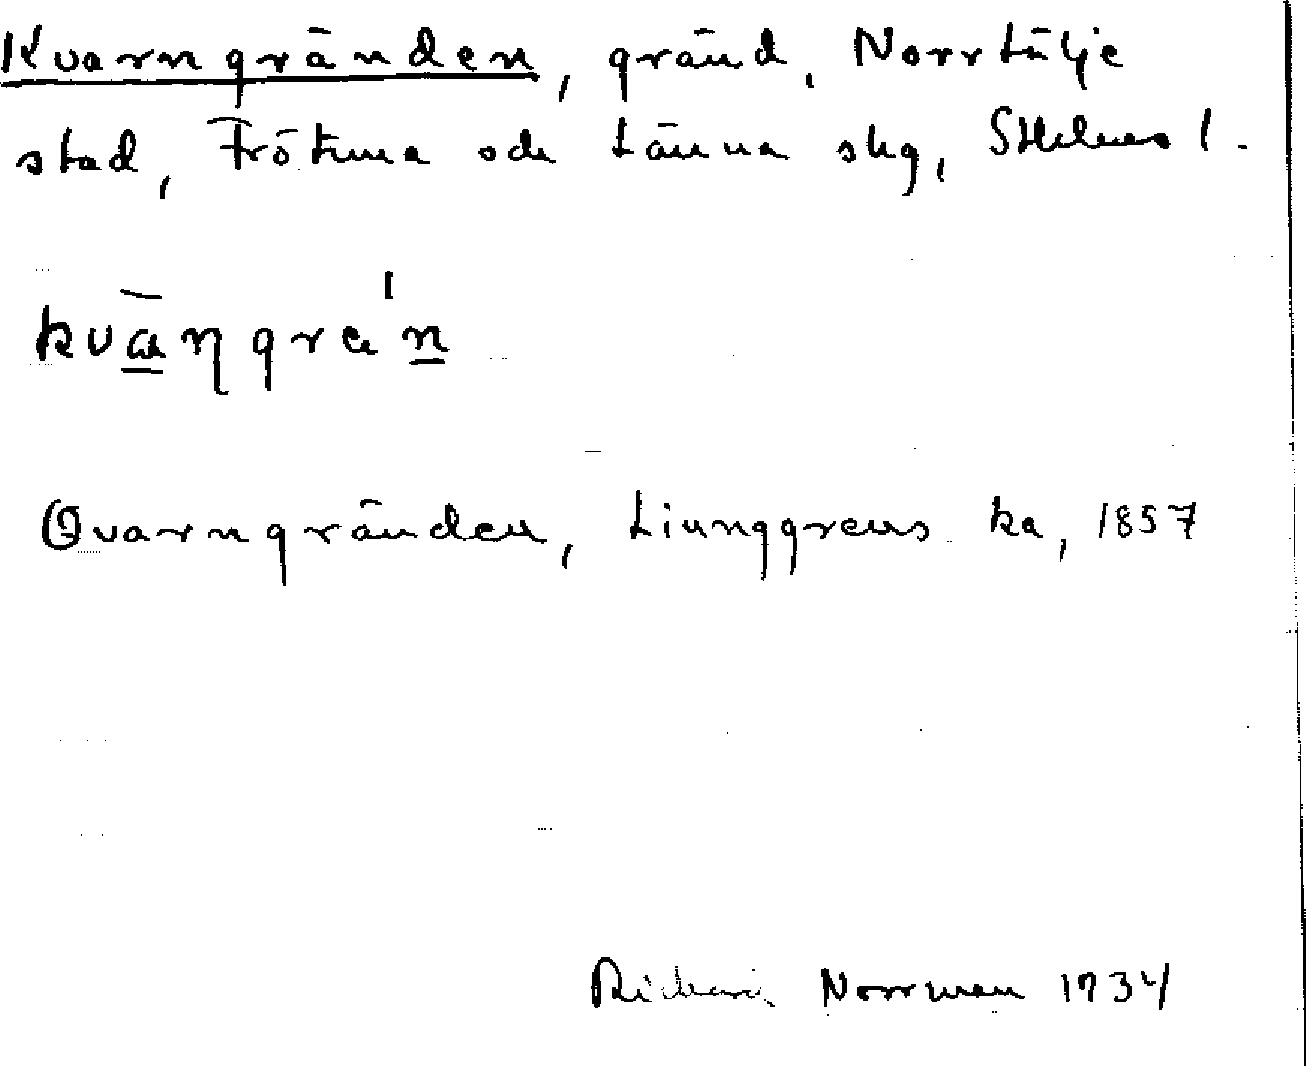 Kvarngränden, gränd, Norrtälje
stad, Frötuna och Länna skg, Sthlms l.
kvàŋgrén
Qvarngränden, Liunggrens ka, 1857
Richard Norrman 1934